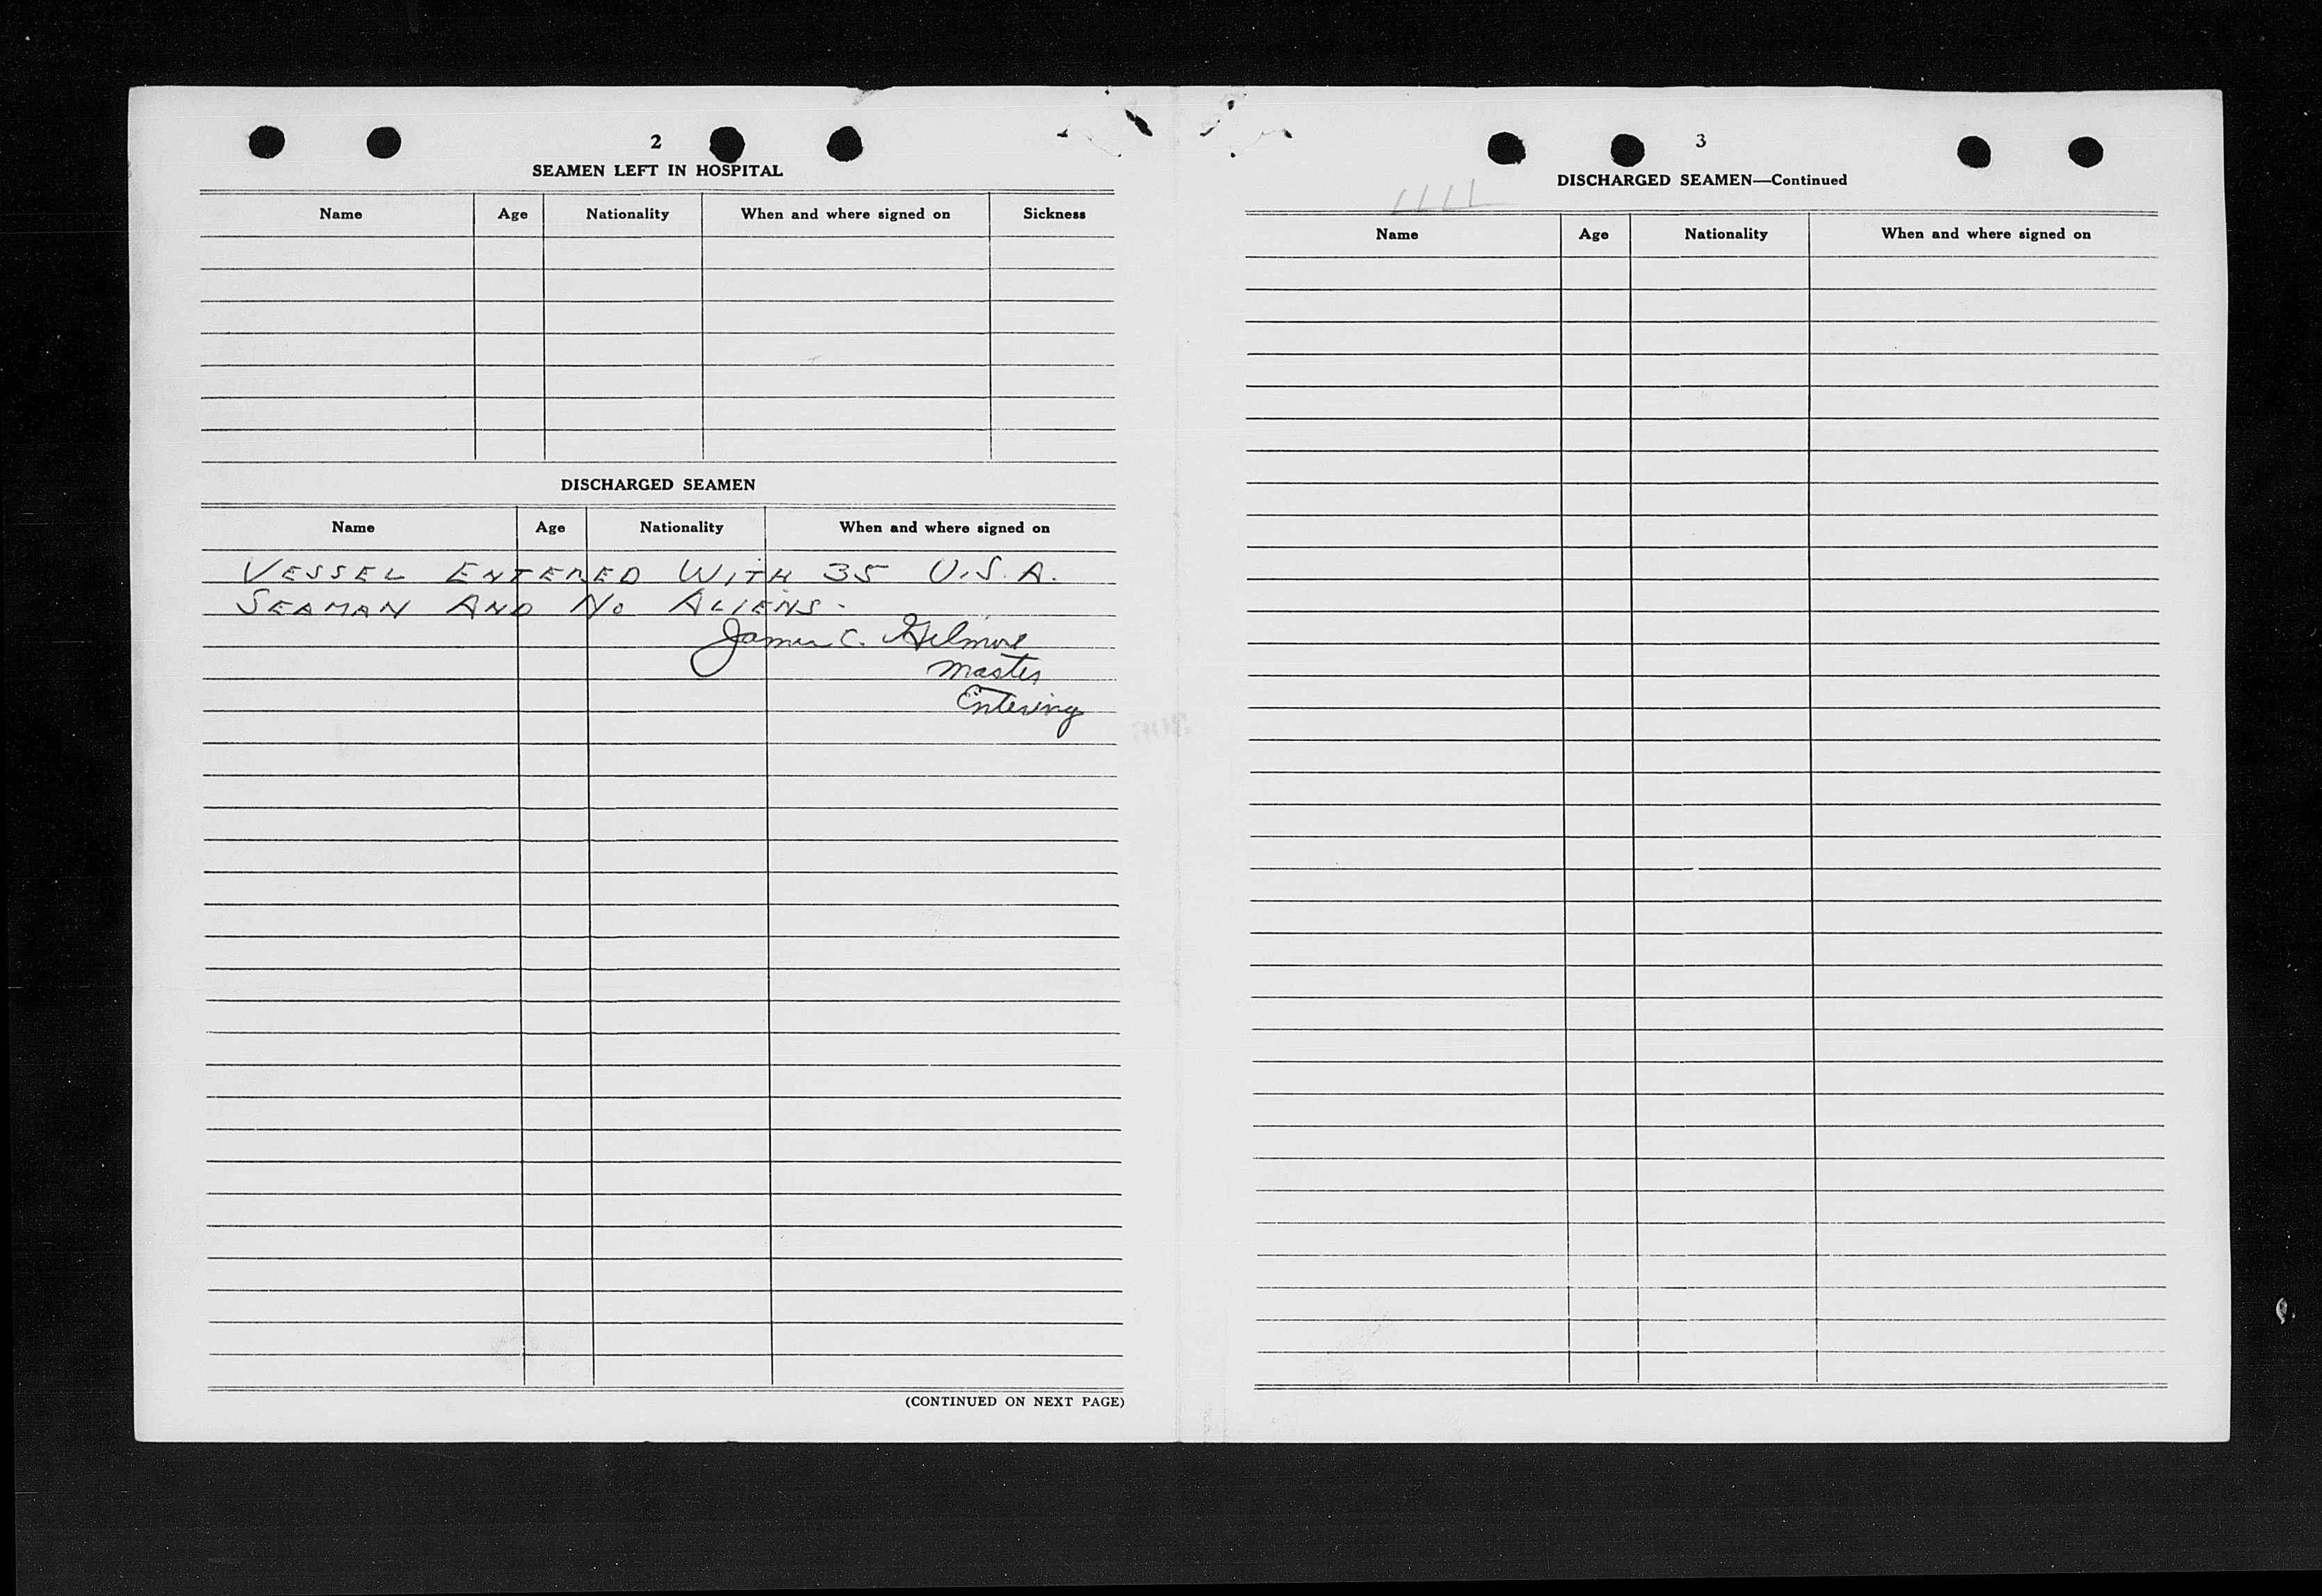 2
SEAMEN LEFT IN HOSPITAL
Name Age Nationality When and where signed on Sickness
DISCHARGED SEAMEN
Name Age Nationality When and where signed on
VESSEL ENTERED WITH 35 U.S.A.
SEAMAN AND NO ALIENS.
James C. Gilmore
Master
Entering
(CONTINUED ON NEXT PAGE)
3
DISCHARGED SEAMEN—Continued
Name Age Nationality When and where signed on